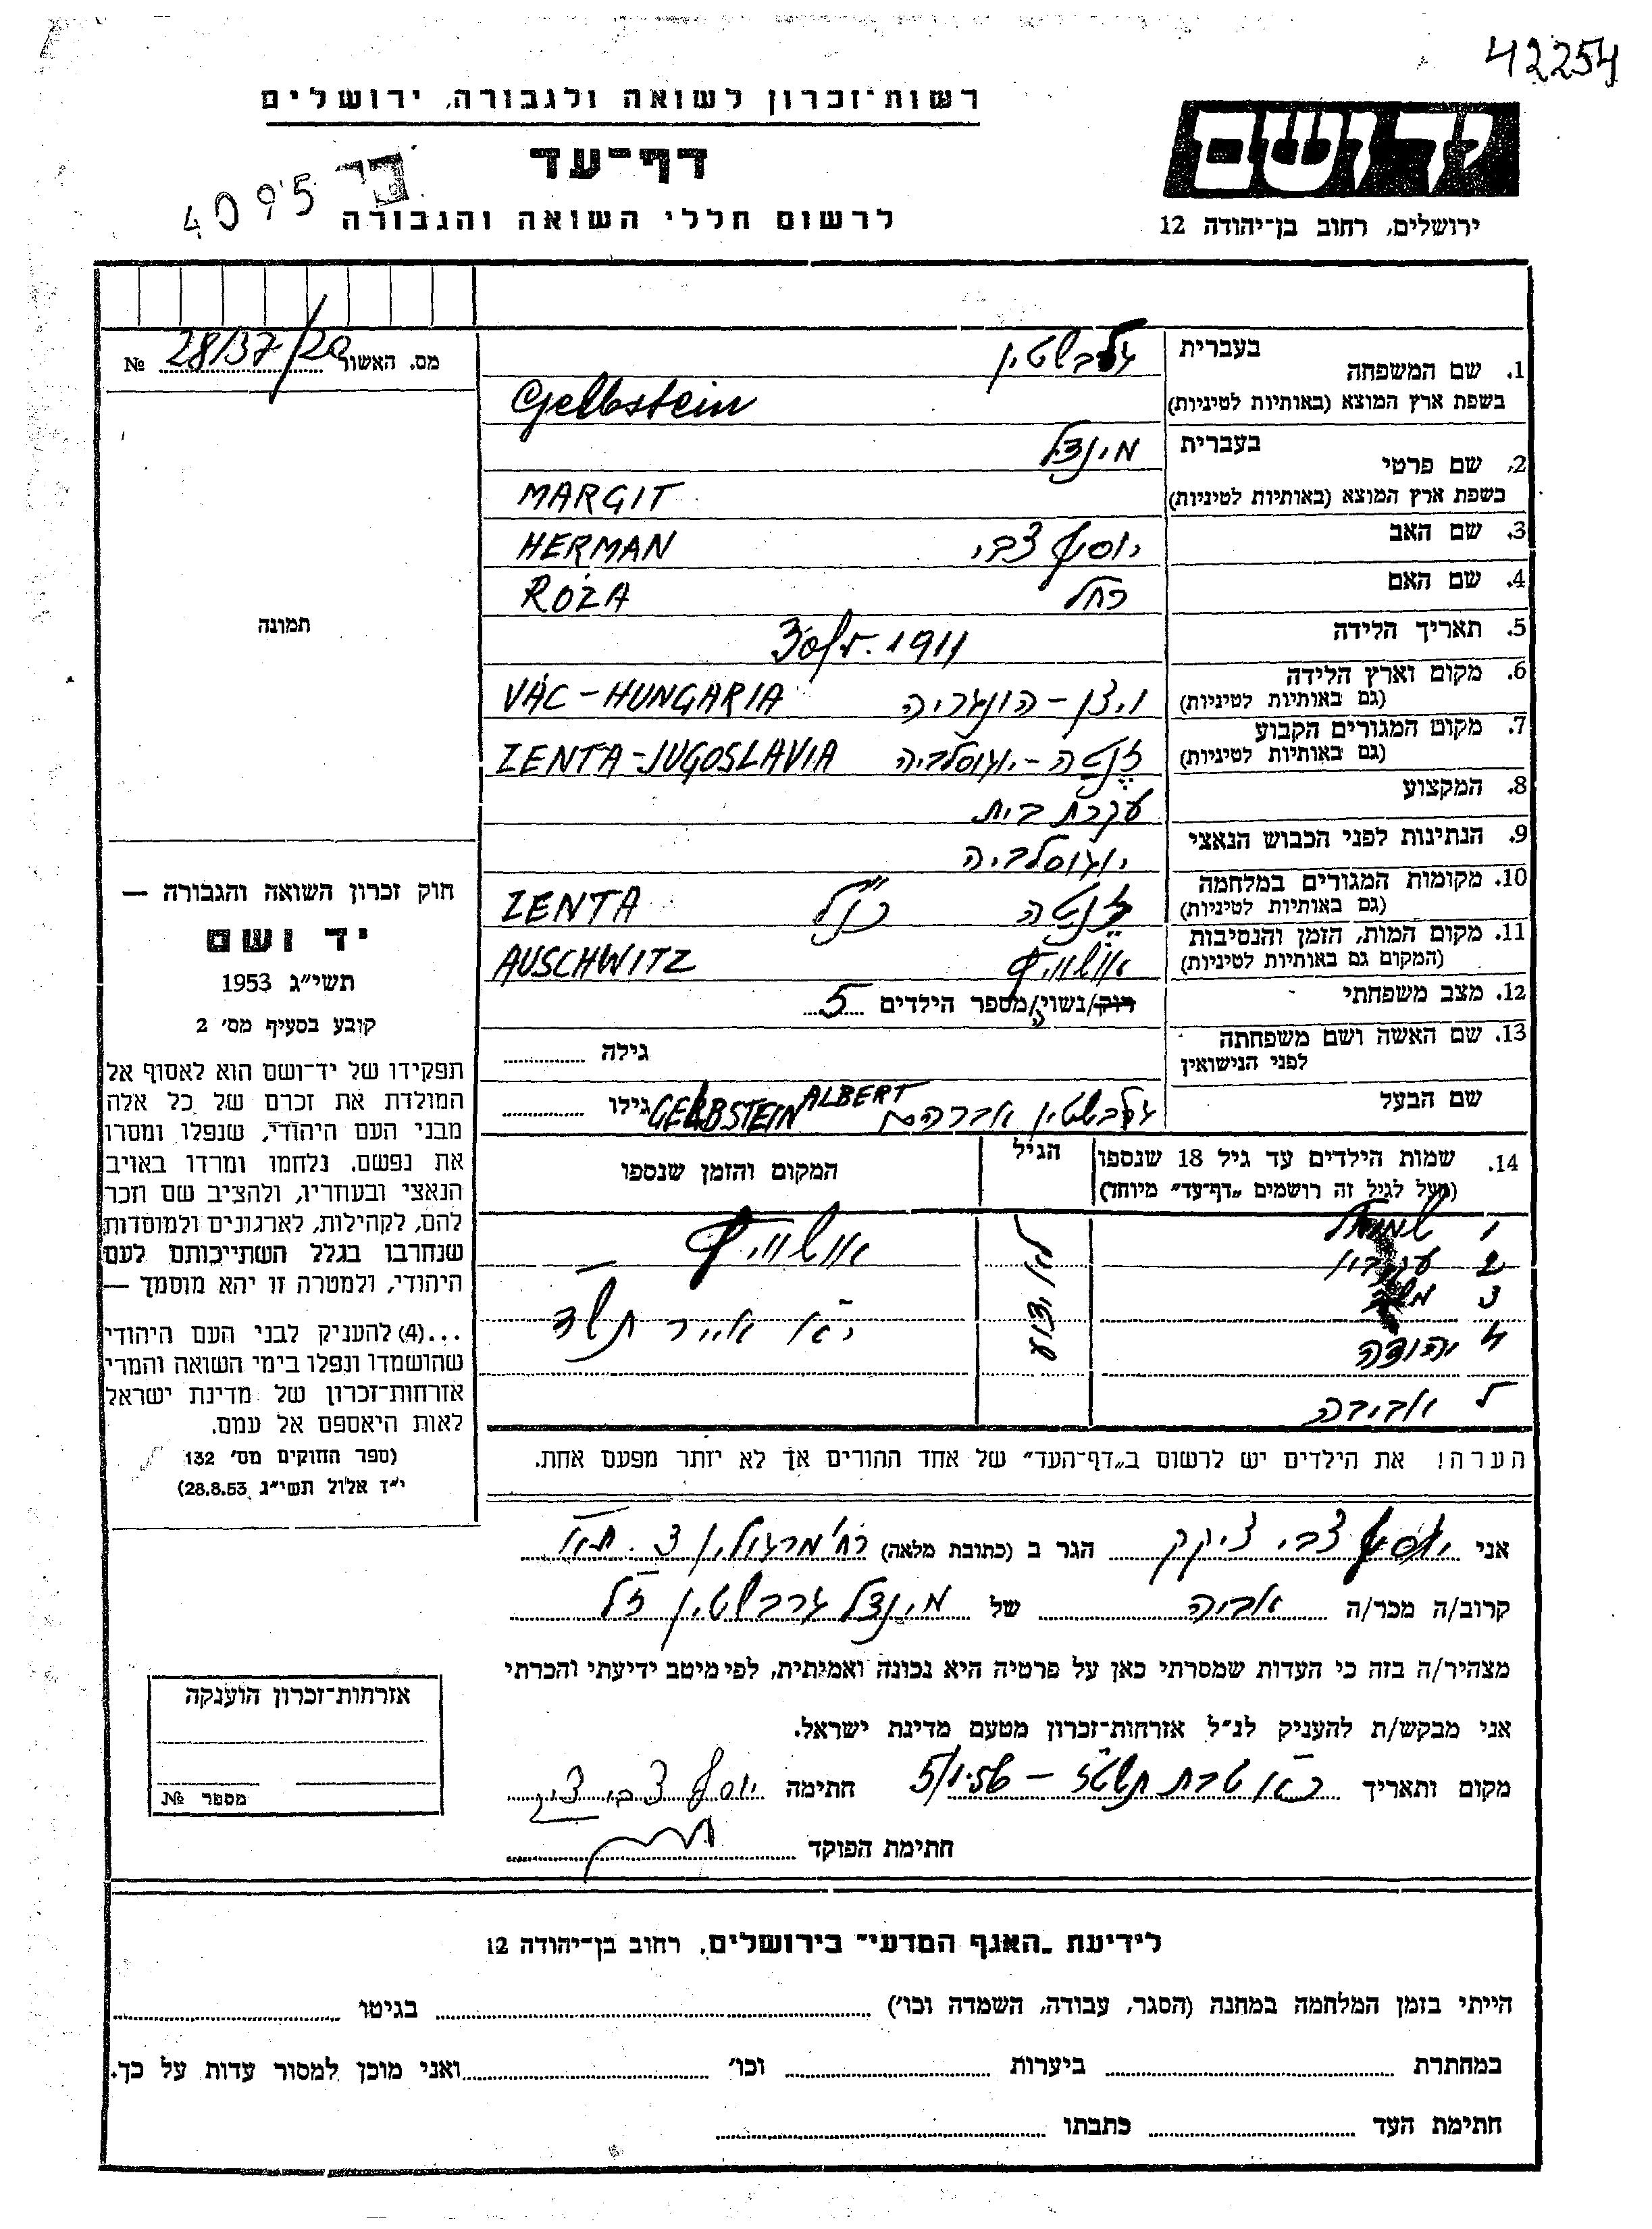 42254
רשות־זכרון לשואה ולגבורה, ירושלים
יד ושם
דף־עד
4095
לרשום חללי השואה והגבורה
ירושלים, רחוב בן־יהודה 12
מס. האשור 28/37/20 №
תמונה
חוק זכרון השואה והגבורה —
יד ושם
תשי״ג 1953
קובע בסעיף מס׳ 2
תפקידו של יד־ושם הוא לאסוף אל
המולדת את זכרם של כל אלה
מבני העם היהודי, שנפלו ומסרו
את נפשם. נלחמו ומרדו באויב
הנאצי ובעוזריו, ולהציב שם וזכר
להם, לקהילות, לארגונים ולמוסדות
שנחרבו בגלל השתייכותם לעם
היהודי, ולמטרה זו יהא מוסמך —
...(4) להעניק לבני העם היהודי
שהושמדו ונפלו בימי השואה והמרי
אזרחות־זכרון של מדינת ישראל
לאות היאספם אל עמם.
(ספר החוקים מס׳ 132
י״ז אלול תשי״ג 28.8.53)
1. שם המשפחה בעברית גלבשטין
בשפת ארץ המוצא (באותיות לטיניות) Gelbstein
2. שם פרטי בעברית מינצל
בשפת ארץ המוצא (באותיות לטיניות) MARGIT
3. שם האב יוסף צבי HERMAN
4. שם האם רחל RÓZA
5. תאריך הלידה 1911
6. מקום וארץ הלידה ויצן - הונגריה VÁC - HUNGARIA
(גם באותיות לטיניות)
7. מקום המגורים הקבוע זנטה - יוגוסלביה ZENTA - JUGOSLAVIA
(גם באותיות לטיניות)
8. המקצוע עקרת בית
9. הנתינות לפני הכבוש הנאצי יוגוסלביה
10. מקומות המגורים במלחמה זנטה כנ״ל ZENTA
(גם באותיות לטיניות)
11. מקום המות, הזמן והנסיבות אושוויץ AUSCHWITZ
(המקום גם באותיות לטיניות)
12. מצב משפחתי רוק/נשוי/ה מספר הילדים 5
13. שם האשה ושם משפחתה גילה
לפני הנישואין
שם הבעל גלבשטין אברהם ALBERT GELBSTEIN גילו
14. שמות הילדים עד גיל 18 שנספו הגיל המקום והזמן שנספו
(מעל לגיל זה רושמים „דף־עד״ מיוחד)
1 שמואל לא ידוע אושוויץ
2 עקיבא
3 משה
4 יהודה י״א אייר תש״ד
5 אביבה
הערה! את הילדים יש לרשום ב„דף־העד״ של אחד ההורים אך לא יותר מפעם אחת.
אני יוסף צבי ציקק הגר ב (כתובת מלאה) רח׳ מרגולין 3. ת״א
קרוב/ה מכר/ה אביה של מינצל גלבשטין ז״ל
מצהיר/ה בזה כי העדות שמסרתי כאן על פרטיה היא נכונה ואמיתית, לפי מיטב ידיעתי והכרתי
אני מבקש/ת להעניק לנ״ל אזרחות־זכרון מטעם מדינת ישראל.
מקום ותאריך כ״א טבת תשט״ז - 5/1.56 חתימה יוסף צבי
חתימת הפוקד
אזרחות־זכרון הוענקה
מספר №
לידיעת „האגף המדעי״ בירושלים, רחוב בן־יהודה 12
הייתי בזמן המלחמה במחנה (הסגר, עבודה, השמדה וכו׳) בגיטו
במחתרת ביערות וכו׳ ואני מוכן למסור עדות על כך.
חתימת העד כתבתו